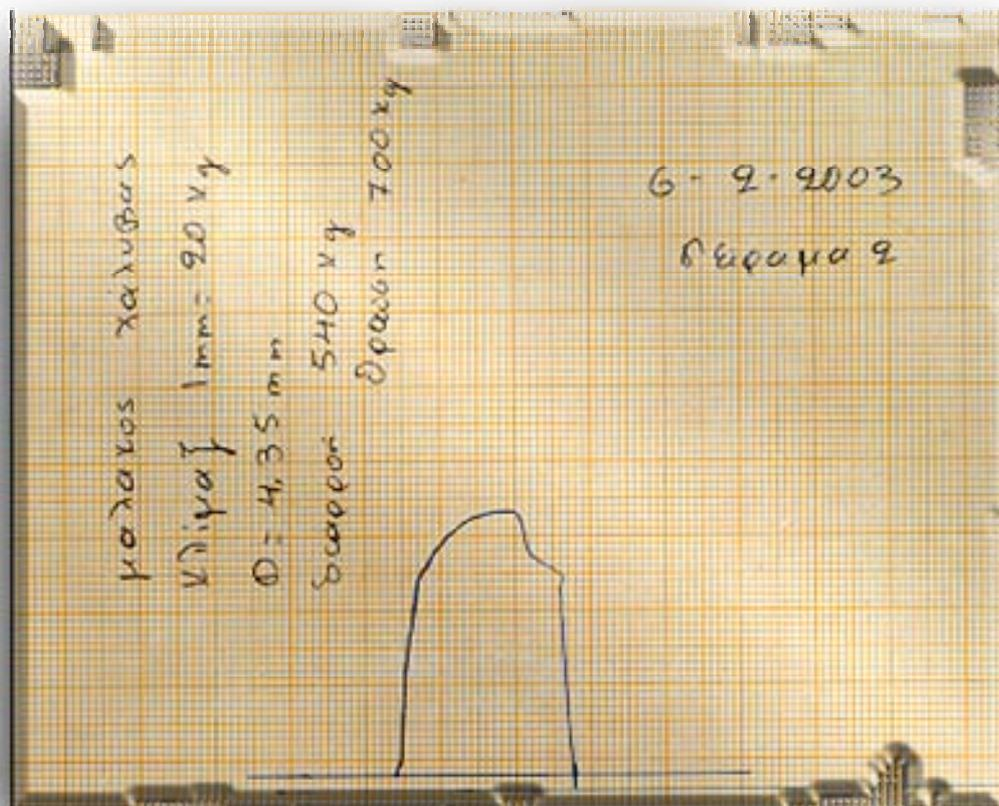 μαλακος χάλυβας
κλίμα} 1mm = 20 κg
D = 4,35 mm
διαρροη 540 κg
θραυση 700 κg
6 - 2 - 2003
πειραμα 2